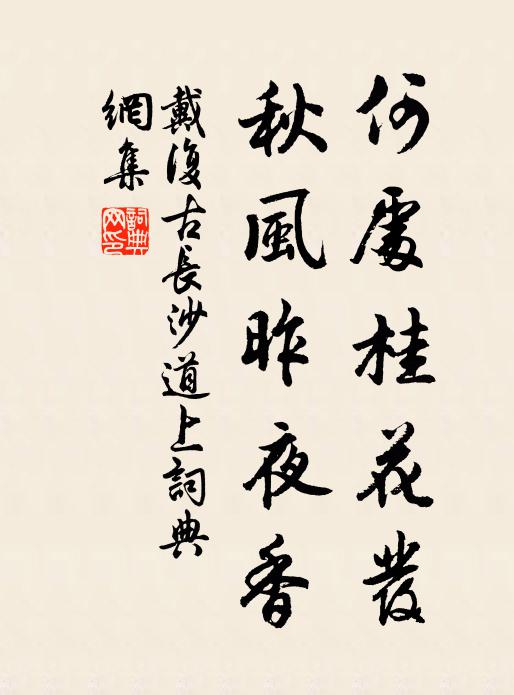 何處桂花發
秋風昨夜香
戴復古長沙道上詞典
網集
詞典網印